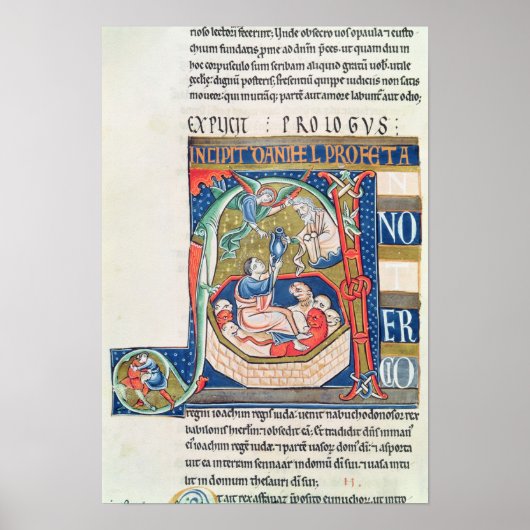 rioso lectori fecerint; Unde obsecro uos o paula ⁊ eusto
chium fundatis p̄me ad dn̄m p̄ces. ut quam diu in
hoc corpusculo sum scribam aliquid gratū uob̄. utile
dignū posteris. p̄sentiū quippe iudiciis non satis
moueor: qui in utraq; partē aut amore labunt̄ aut odio;
EXPLICIT : PROLOGVS :
INCIPIT DANIHEL PROFETA
A N
NO
T
ER
GO
regni ioachim regis iuda: uenit nabuchodonosor rex
babilonis hierl̄m ⁊ obsedit eā; Et tradidit dn̄s in manu
ei ioachim regē iudæ: ⁊ partē uasor̄ dom̄ dī: ⁊ asporta
uit ea in terram sennaar in domū dī sui: ⁊ uasa intu
lit in domum thesauri dī sui;
ait rex p̄posito eunuchor̄. ut int